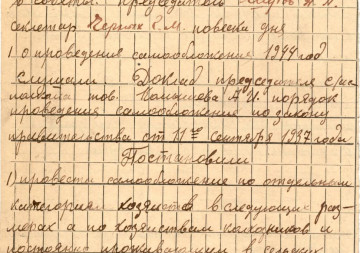 председатель
секретар Черных Е. М. повеска дня
1) о проведения самообложения 1944 год
Слушали Доклад председателя с/ис
полкома тов. А. И. порядок
проведения самообложения по закону
правительства от 11го сентября 1937 года
Постановили
1) провести самообложение по отдельном
категориям хозяйств в следующих раз
мерах а по хозяйствам колхозников и
постоянно проживающим в сельских